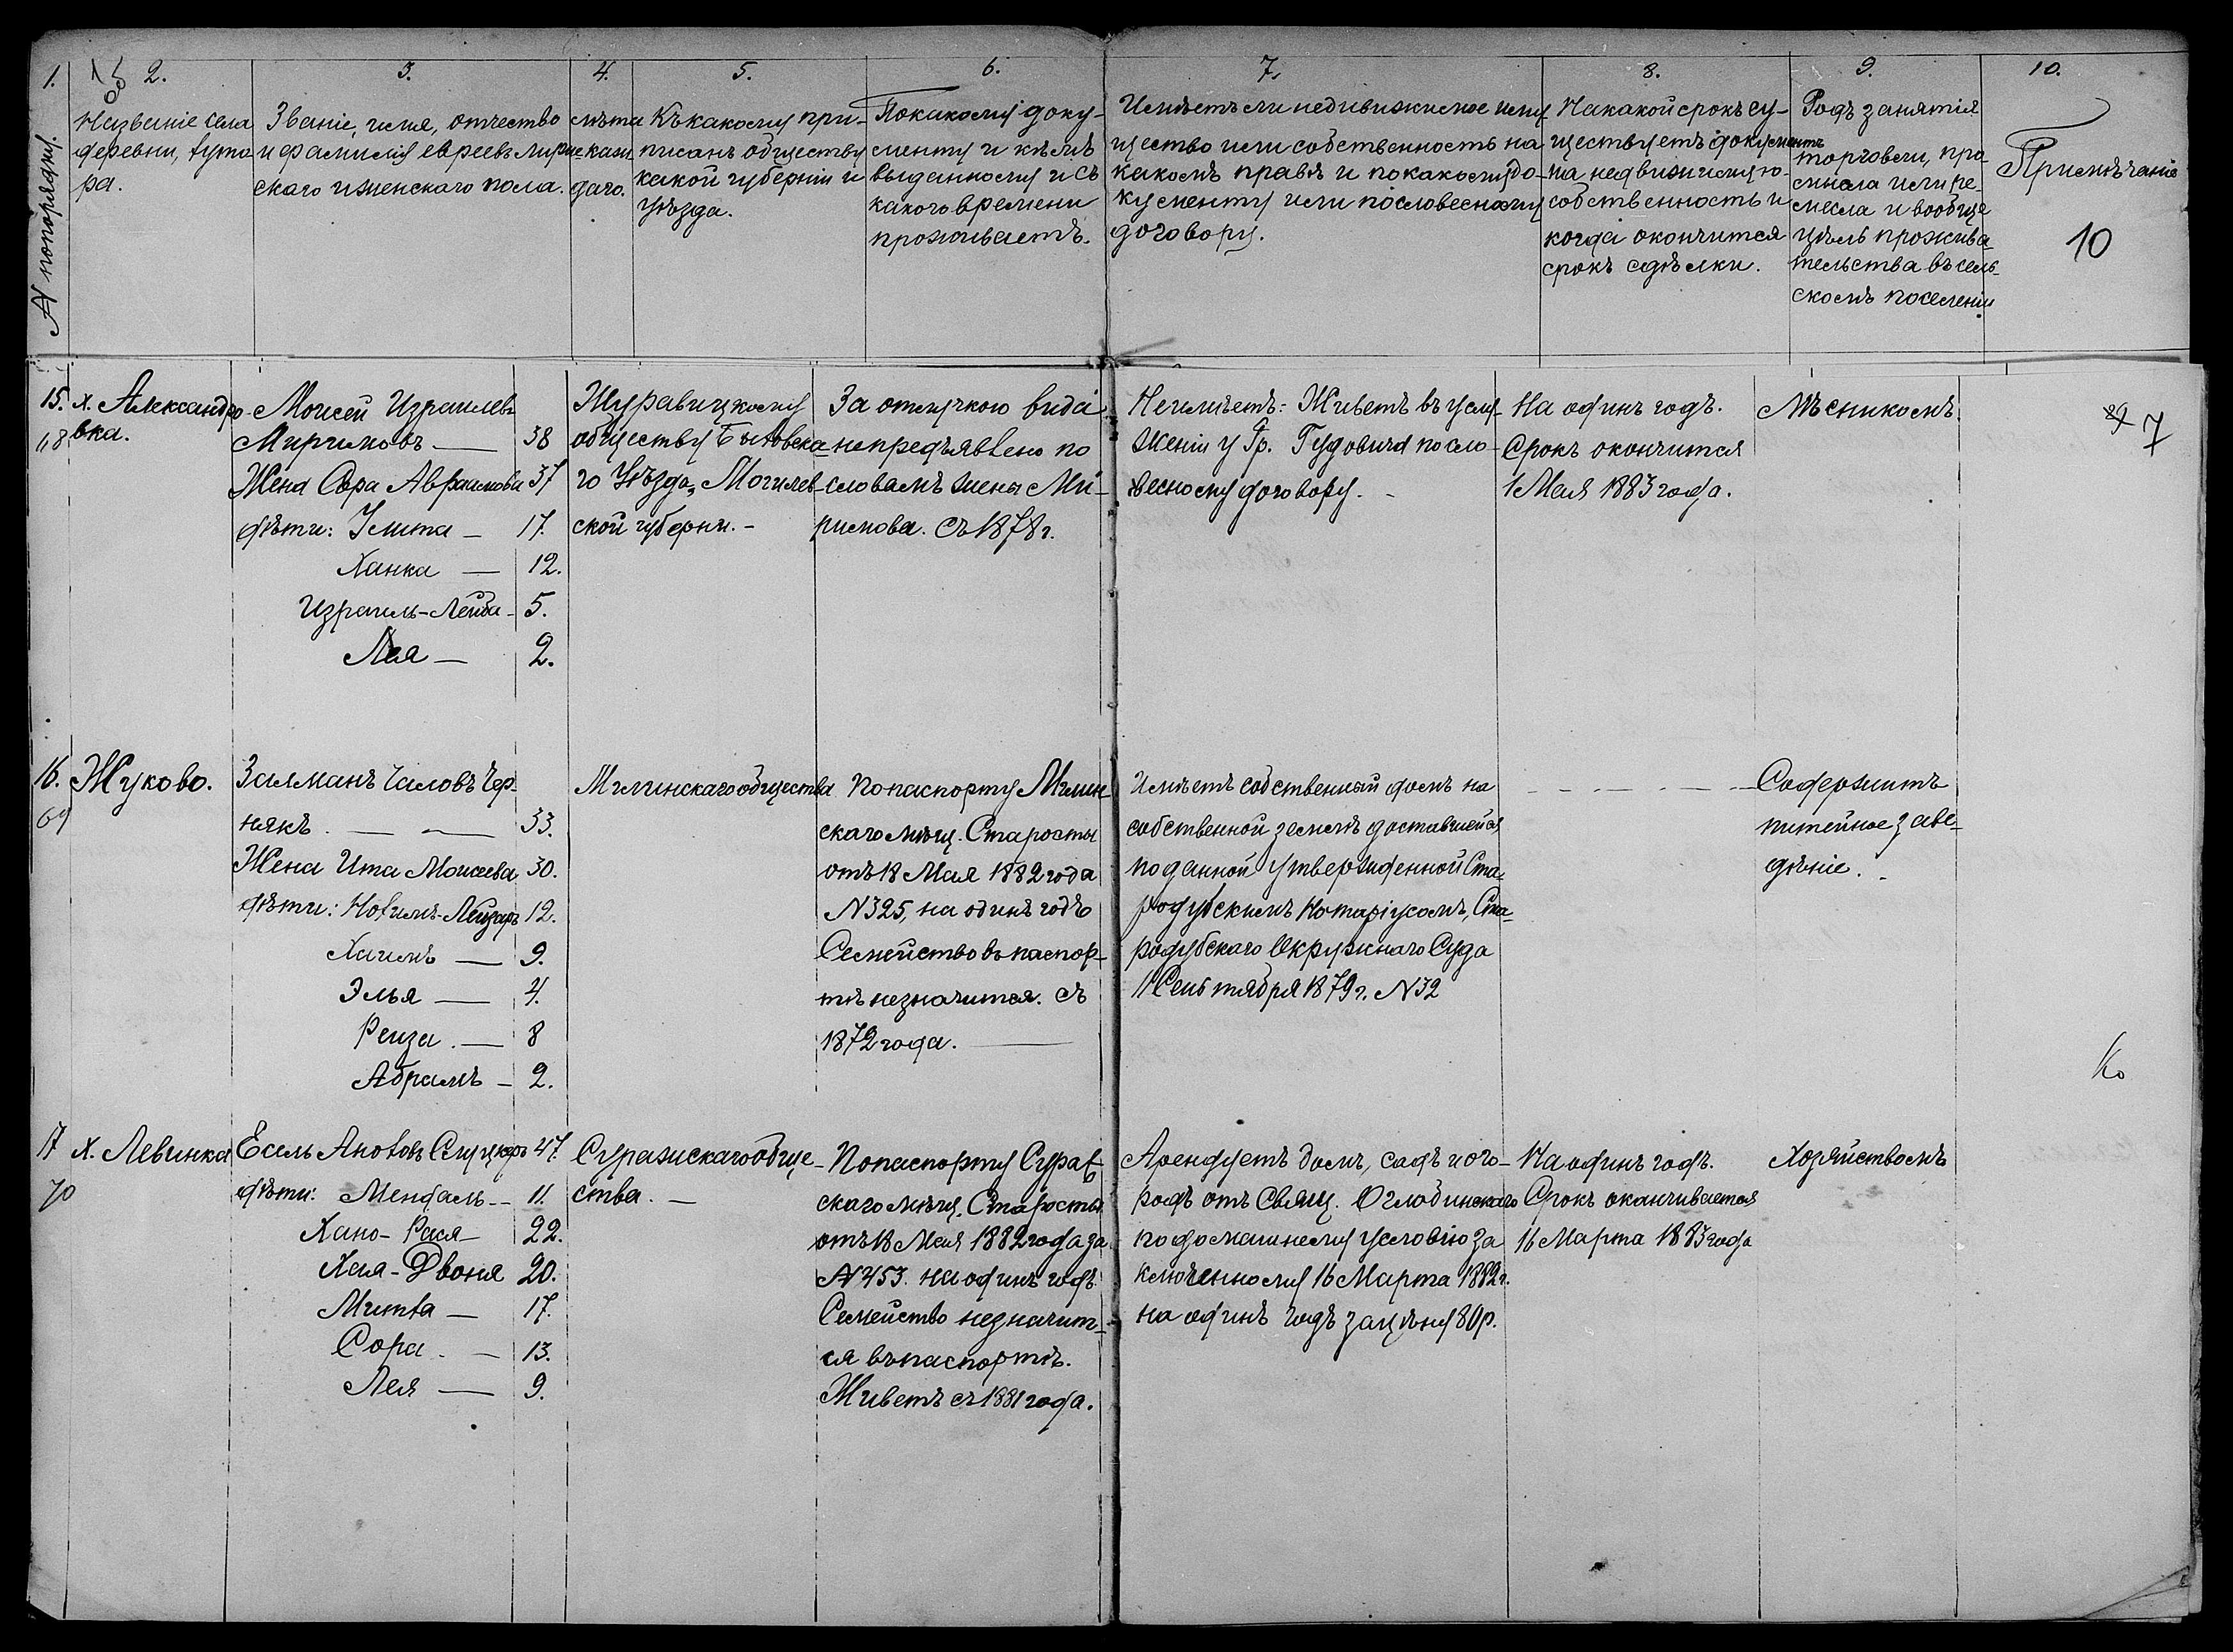 1. 2. 3. 4. 5. 6. 7. 8. 9. 10.
N попорядку.
Названіе села
деревни, хуто-
ра.
Званіе, имя, отчество
и фамилія евреевъ муж-
скаго и женскаго пола.
лѣта
кажд
даго.
Къ какому при-
писанъ обществу
какой губерніи и
уѣзда.
По какому доку-
менту и кѣмъ
выданному и съ
какого времени
проживаетъ.
Имѣетъ ли недвижимое иму-
щество или собственность на
какомъ правѣ и по какому до-
кументу или по словесному
договору.
На какой срокъ су-
ществуетъ документъ
на недвижимую
собственность и
когда окончится
срокъ сдѣлки.
Родъ занятія
торговли, про-
мысла или ре-
месла и вообще
цѣль прожива-
тельства въ сель-
скомъ поселеніи
Примѣчаніе
10
15. х. Александро-
68 вка.
Моисей Израилевъ
Миримовъ — 38
Жена Сора Авраимова 37
дѣти: — 17.
Ханка — 12.
Израиль-Лейба - 5.
Лея — 2.
Журавицкому
обществу Быховска-
го Уѣзда, Могилев-
ской губерніи. -
За отлучкою вида
непредъявлено по
словамъ жены Ми-
римова. Съ 1878 г.
Неимѣетъ: Живетъ въ услу-
женіи у Гр. Гудовича по сло-
весному договору. -
На одинъ годъ.
Срокъ окончится
1 Мая 1883 года.
Лѣсникомъ.
7
16. Жуково.
69
Залманъ Чаловъ Чер-
някъ — 33.
Жена Ита Моисеева 30.
дѣти: Нохимъ-Лейзаръ 12.
Хаимъ — 9.
Элья — 4.
Рейза — 8
Абрамъ — 2.
Мглинскаго общества
По паспорту Мглин
скаго мѣщ. Старосты
отъ 18 Мая 1882 года
N 325, на одинъ годъ
Семейство въ паспор-
тѣ незначится. Съ
1872 года. —
Имѣетъ собственный домъ на
собственной землѣ доставшейся
по данной утвержденной Ста-
родубскимъ Нотаріусомъ, Ста-
родубскаго Окружнаго Суда
11 Сентября 1879 г. N 32
Содержитъ
питейное заве-
деніе.
17 х. Левинка
70
Есель 47.
дѣти: Мендаль -- 11.
Хано-Рася 22.
Хая-Двоня 20.
17.
Сора — 13.
Лея — 9.
Суражскаго обще-
ства. —
По паспорту Сураж-
скаго мѣщ. Старосты
отъ 18 Мая 1882 года за
N 453. на одинъ годъ
Семейство незначит-
ся въ паспортѣ.
Живетъ съ 1881 года.
Арендуетъ домъ, садъ и ого-
родъ отъ Свящ. Оглоблинскаго
по домашнему условію за
ключенному 16 Марта 1882 г.
на одинъ годъ за цѣну 80 р.
На одинъ годъ.
Срокъ оканчивается
16 Марта 1883 года
Хозяйствомъ